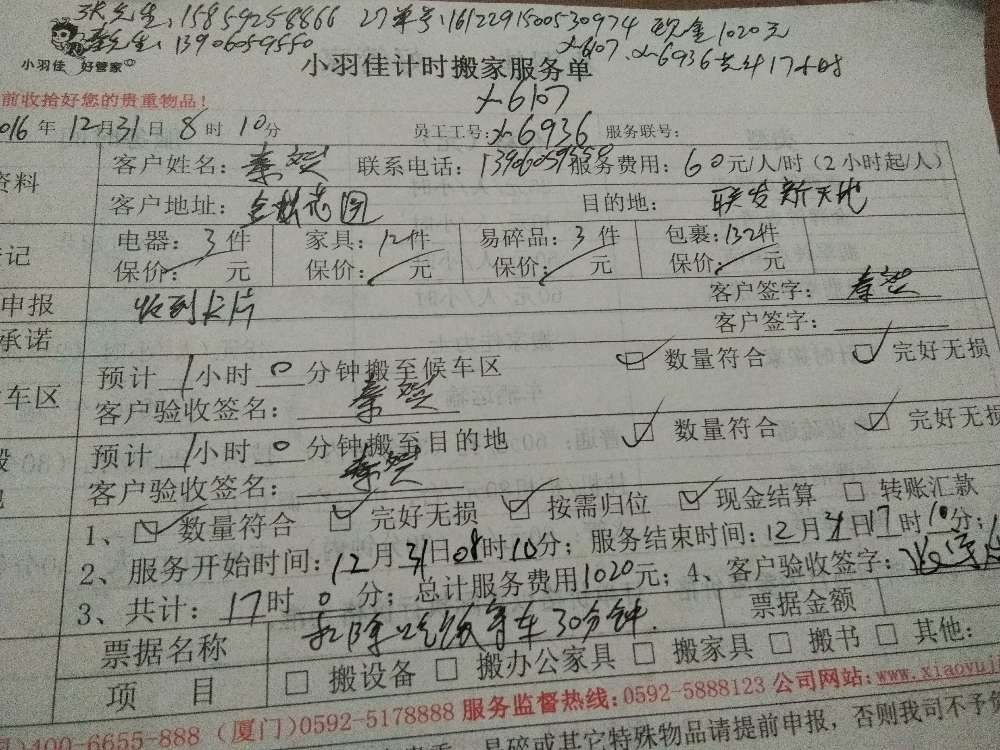 张先生:15859258866 订单号:161229150053 0974 现金1020元
秦先生:13906059550 xl-6107、xl-6936共计17小时
小羽佳 好管家
小羽佳计时搬家服务单
前收拾好您的贵重物品! xl-6107
016年12月31日8时10分 员工工号:xl-6936 服务联号:
资料 客户姓名:秦 联系电话:13906059550 服务费用:60元/人/时(2小时起/人)
客户地址: 目的地:联发新天地
记 电器:3件 家具:12件 易碎品:3件 包裹:132件
保价: 元 保价: 元 保价: 元 保价: 元
申报 收到卡片 客户签字:秦
承诺 客户签字:
车区 预计1小时0分钟搬至候车区 ☑数量符合 ☑完好无损
客户验收签名:秦
预计1小时0分钟搬至目的地 ☑数量符合 ☑完好无损
客户验收签名:秦
1、☑数量符合 ☑完好无损 ☑按需归位 ☑现金结算 □转账汇款
2、服务开始时间:12月31日08时10分;服务结束时间:12月31日17时10分;
3、共计:17时0分;总计服务费用1020元;4、客户验收签字:
票据名称 扣除吃饭等车30分钟. 票据金额
项 目 □搬设备 □搬办公家具 □搬家具 □搬书 □其他:
)400-6655-888(厦门)0592-5178888 服务监督热线:0592-5888123 公司网站:www.xiaoyuji
易碎或其它特殊物品请提前申报,否则我司不予